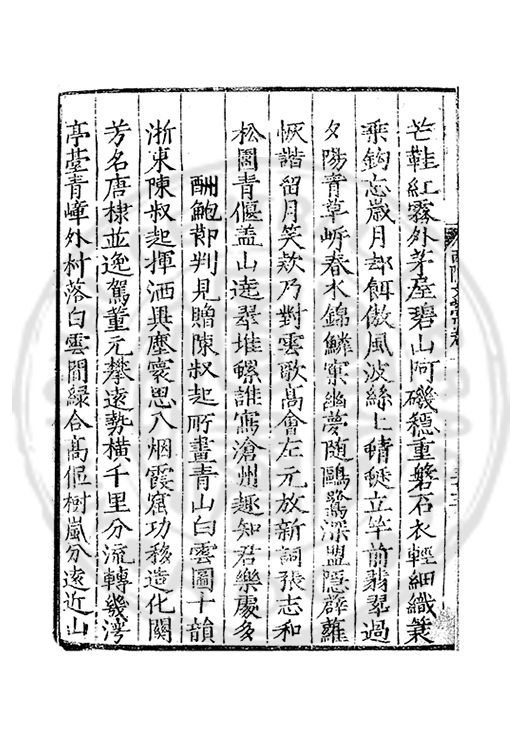 芒鞋紅霧外茅屋碧山阿磯穩重磐石衣輕細織蓑
垂鈎忘歲月却餌傲風波絲上蜻蜓立竿前翡翠過
夕陽青草岍春水錦鱗窠幽夢随鷗鷺深盟隱薜蘿
恢諧留月笑欵乃對雲歌髙會左元放新詞張志和
松圎青偃盖山遶翠堆螺誰寫滄州趣知君樂處多
酬鮑節判見贈陳叔起所畫青山白雲圖十韻
浙東陳叔起揮洒與塵寰思入烟霞窟功移造化關
芳名唐棣並逸駕董元攀遠勢横千里分流轉幾灣
亭臺青嶂外村落白雲間緑合髙低樹嵐分遠近山